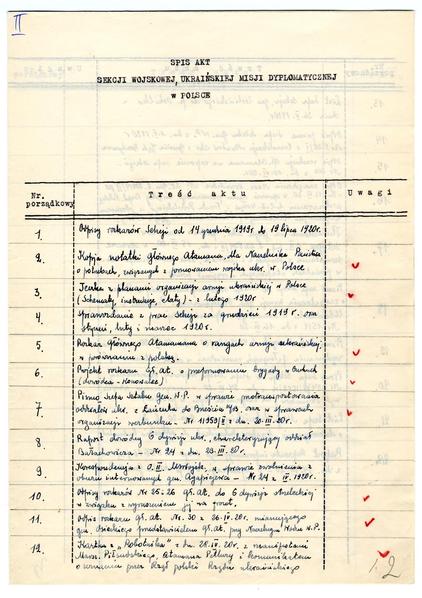 II
SPIS AKT
SEKCJI WOJSKOWEJ, UKRAIŃSKIEJ MISJI DYPLOMATYCZNEJ
W POLSCE
Nr. porządkowy
Treść aktu
Uwagi
1. Odpisy rozkazów Sekcji od 14 grudnia 1919r. do 19 lipca 1920r.
2. Kopja notatki Głównego Atamana, dla Naczelnika Państwa
o potrzebach, związanych z formowaniem wojska ukr. w Polsce
3. Teczka z planami organizacji armji ukraińskiej w Polsce
(Schematy, instrukcje, etaty) - z lutego 1920r
4. Sprawozdanie z prac Sekcji za grudzień 1919 r. oraz
styczeń, luty i marzec 1920r.
5. Rozkaz Głównego Atamana o rangach armji ukraińskiej.
w porównaniu z polską.
6. Projekt rozkazu Gł. At. o
(dowódca - )
7. Pismo Szefa Sztabu Gen. W.P. w sprawie przetransportowania
oddziałów ukr. z Łańcuta do Brześcia n/B. oraz w sprawach
organizacji werbunku. Nr 1959/II z dn. 20.III.20r.
8 Raport dowódcy 6 dywizji ukr. charakteryzujący oddział
Bałachowicza. - Nr 24 z dn. 23.III.20r.
9. Korespondencja z O. II. w sprawie zwolnienia z
obozu internowanych gen. - Nr 24 z IV. 1920r.
10. Odpisy rozkazów Nr 25-26 Gł. At. do 6 dywizji strzeleckiej
w związku z wyruszeniem jej na front.
11. Odpis rozkazu Gł. At. Nr. 30 z 26.IV.20r. mianującego
gen. przedstawicielem Gł. At. przy Naczelnym W.P.
12. Kartka z "Robotnika" z dn. 28.IV.20r. z manifestami
Marsz. Piłsudskiego, Atamana Petlury i komunikatem
o uznaniu przez Rząd polski Rządu ukraińskiego
2